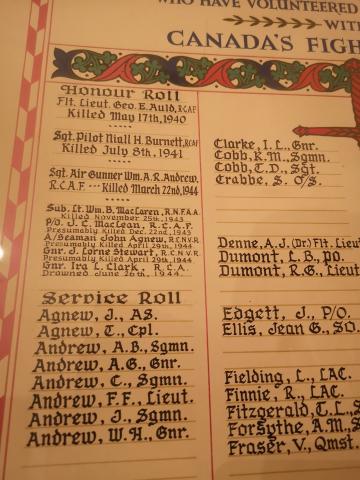 WHO HAVE VOLUNTEERED
WITH
CANADA'S FIGH
Honour Roll
Flt. Lieut. Geo. E. Auld, R.C.A.F.
Killed May 17th, 1940
Sgt. Pilot Niall H. Burnett, R.C.A.F.
Killed July 8th, 1941
Sgt. Air Gunner Wm. A.R. Andrew,
R.C.A.F. --- Killed March 22nd, 1944
Sub. Lt. Wm. B. MacLaren, R.N.F.A.A.
Killed November 25th, 1943
P/O. J. C. MacLean, R.C.A.F.
Presumably Killed Dec. 22nd, 1943
A/Seaman John Agnew, R.C.N.V.R.
Presumably Killed April 29th, 1944
Gnr. J. Lorne Stewart, R.C.N.V.R.
Presumably Killed April 29th, 1944
Gnr. Ira L. Clark, R.C.A.
Drowned June 26th, 1944
Service Roll
Agnew, J., AS.
Agnew, T., Cpl.
Andrew, A.B., Sgmn.
Andrew, A.G., Gnr.
Andrew, C., Sgmn.
Andrew, F.F., Lieut.
Andrew, J., Sgmn.
Andrew, W.H., Gnr.
Clarke, I.L., Gnr.
Cobb, K.M., Sgmn.
Cobb, T.D., Sgt.
Crabbe, S. O/S.
Denne, A.J. (Dr.) Flt. Lieut
Dumont, L.B., PO.
Dumont, R.G., Lieut
Edgett, J., P/O.
Ellis, Jean G., SO.
Fielding, L., LAC.
Finnie, R., LAC.
Fitzgerald, T.L., S
Forsythe, A.M., S
Fraser, V., Qmst.